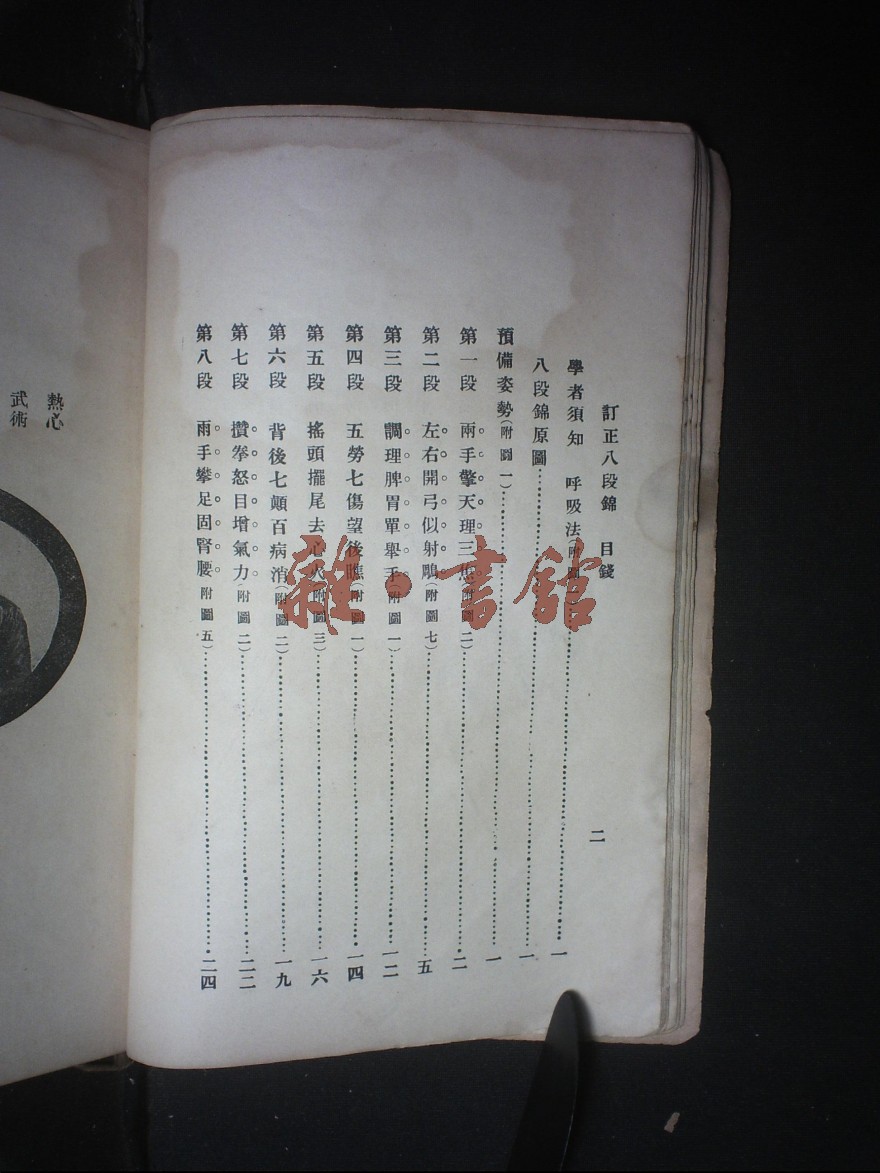 訂正八段錦 目錢
二
學者須知 呼吸法附圖……一
八段錦原圖……一
預備姿勢(附圖一)……一
第一段 兩手擎天理三焦(附圖二)……二
第二段 左右開弓似射鵰(附圖七)……五
第三段 調理脾胃單舉手(附圖一)……一二
第四段 五勞七傷望後瞧(附圖一)……一四
第五段 搖頭擺尾去心火(附圖三)……一六
第六段 背後七顛百病消(附圖二)……一九
第七段 攢拳怒目增氣力(附圖二)……二二
第八段 雨手攀足固腎腰(附圖五)……二四
熱心
武術
雜·書館